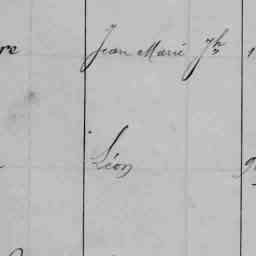 re Jean Marie Jh 1
Léon 9